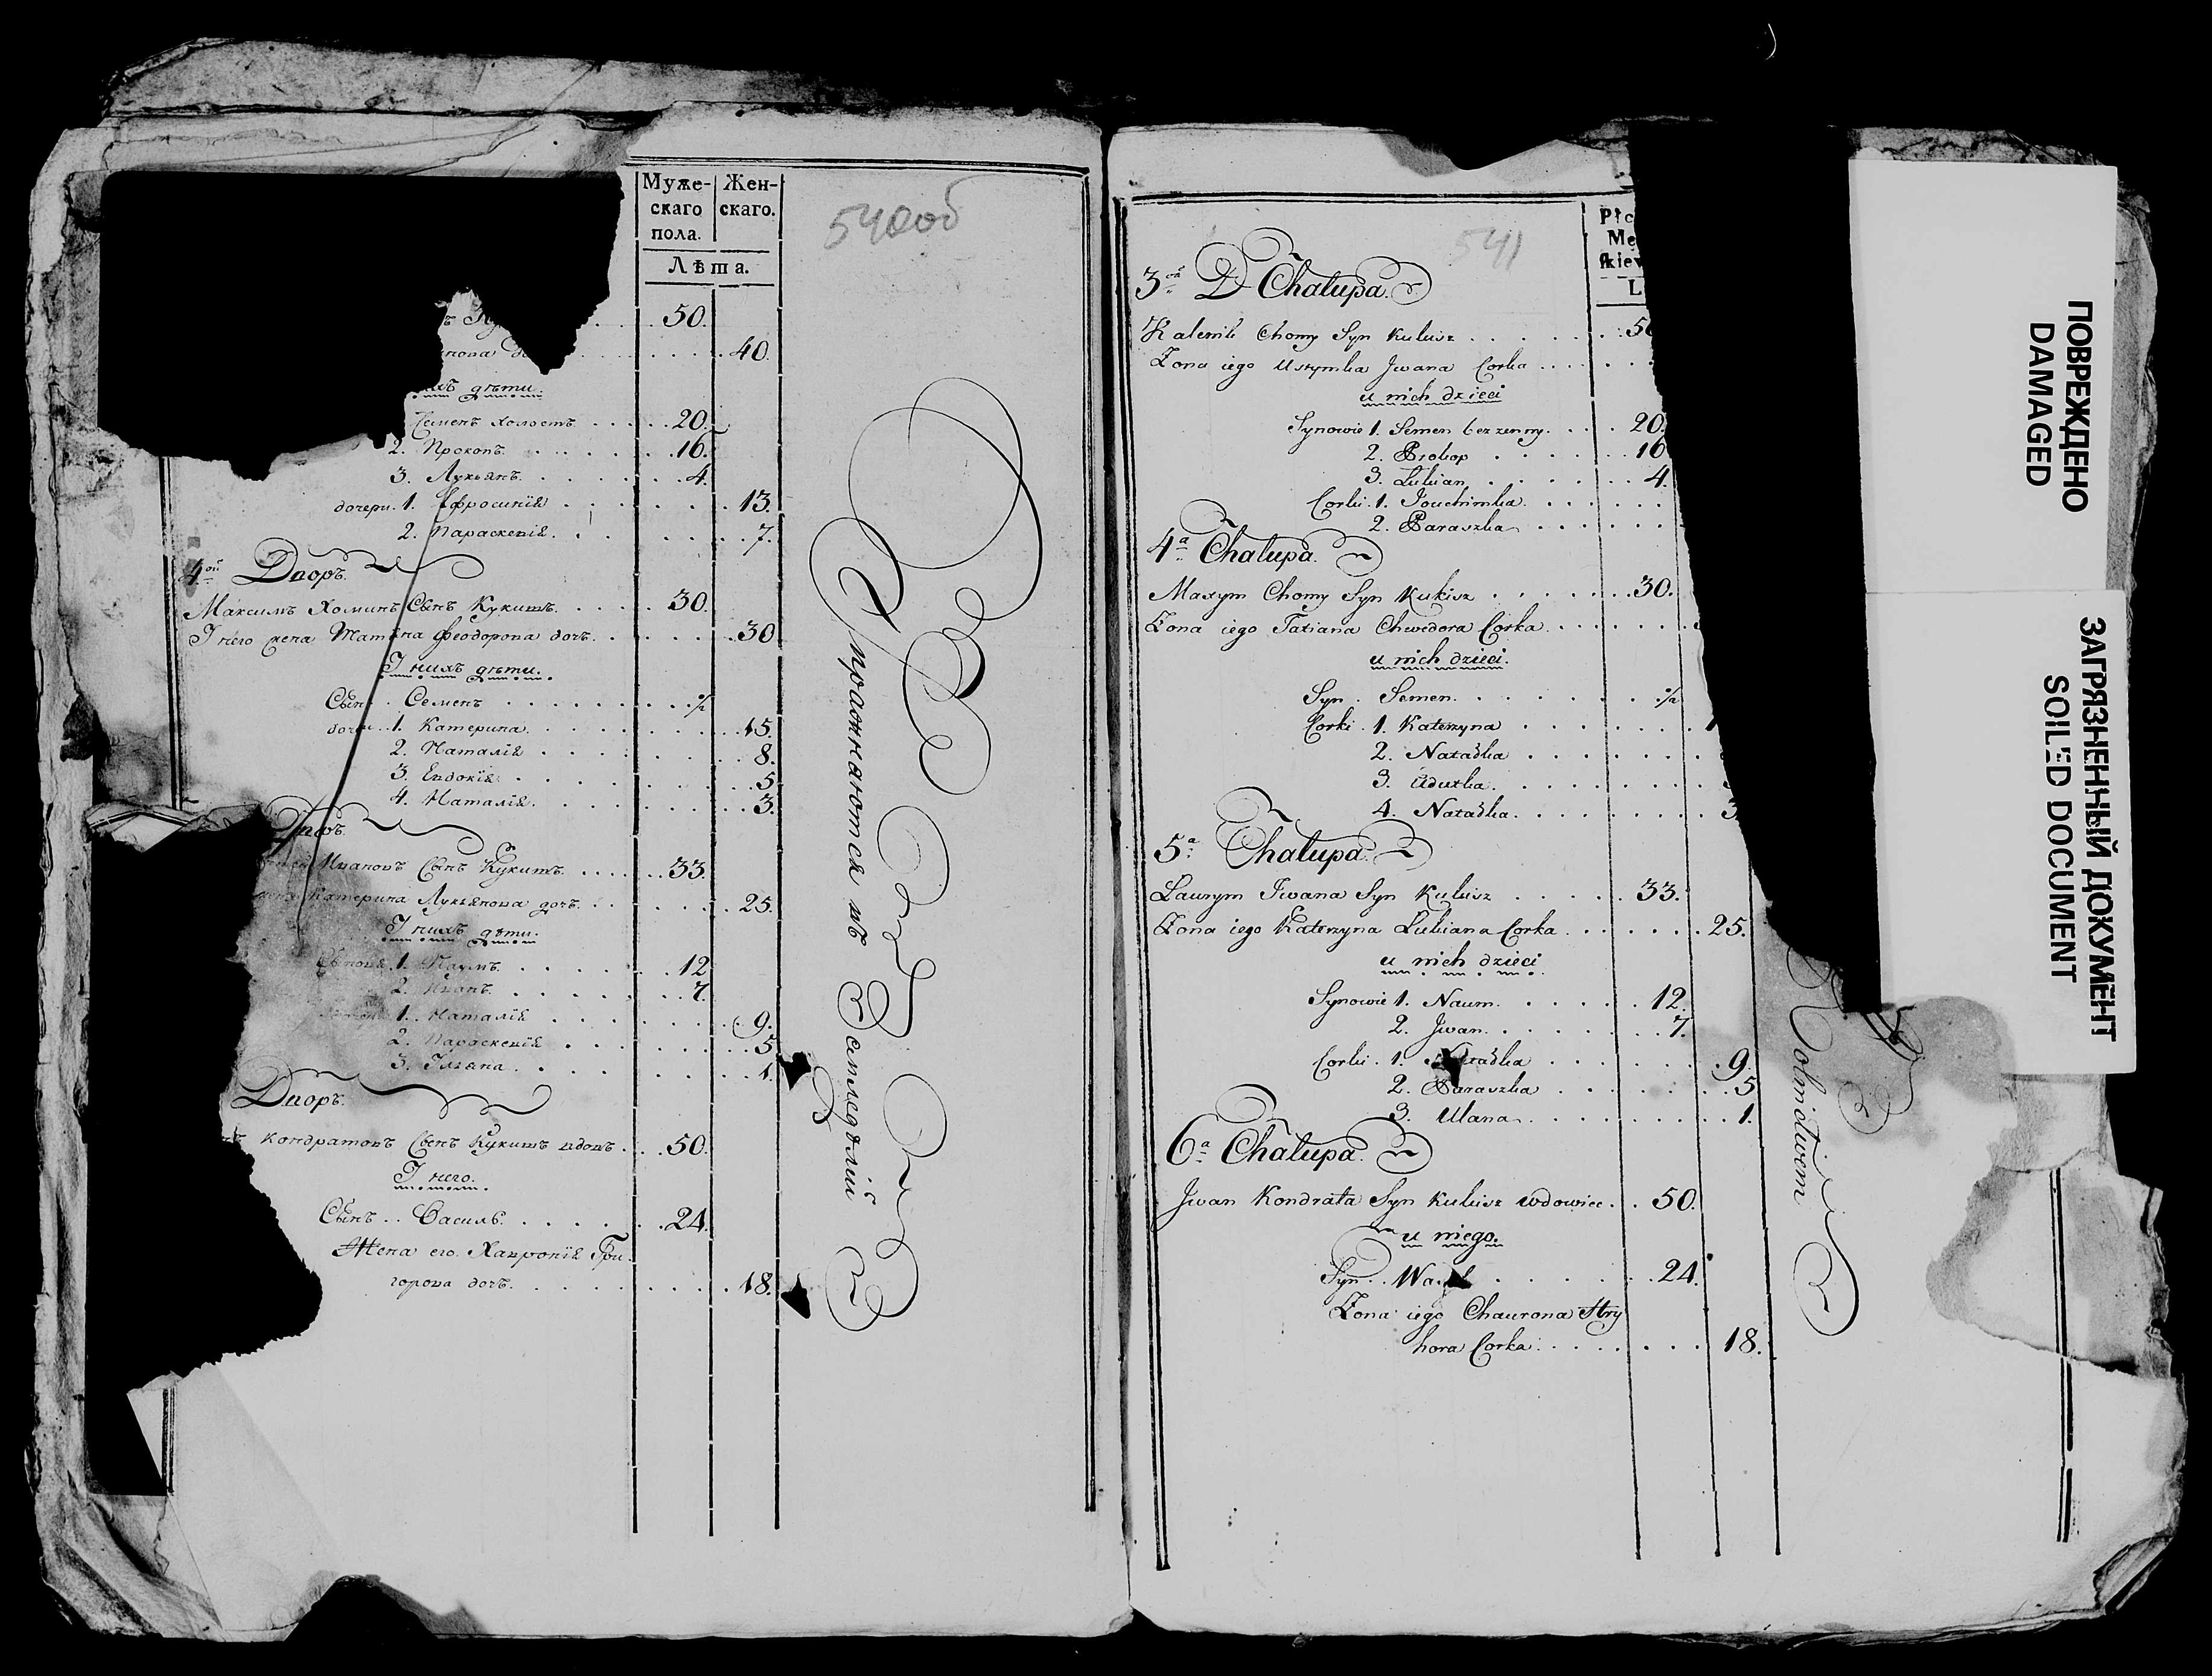 Муже-
скаго
пола.
Жен-
скаго.
Лѣта.
540об
50.
40.
дѣти.
Семенъ холостъ 20.
2. Прокопъ. 16.
3. Лукьянъ. 4.
дочери. 1. Ефросинія 13.
2. Параскевія. 7.
4ой Дворъ.
Максимъ Хоминъ Сынъ Кукишъ. 30.
У него жена Татіяна Феодорова дочь. 30
У нихъ дѣти.
Сынъ. Семенъ ½
дочери. 1. Катерина. 15.
2. Наталія 8.
3. Евдокія 5
4. Наталія. 3.
Дворъ.
Ивановъ Сынъ Кукишъ. 33.
Катерина Лукьянова дочь. 25.
У нихъ дѣти.
Сыновья 1. Наумъ. 12
2. Иванъ. 7.
1. Наталія 9.
2. Параскевія 5
3. Ульяна. 1.
Дворъ.
Кондратовъ Сынъ Кукишъ вдовъ. 50.
У него.
Сынъ.. Василь. 24.
Жена его. Хавронія Гри-
горова дочь. 18.
Упражняются въ Земледѣліи
541
3я Chalupa.
Chomy Syn Kukisz 50
Żona iego Ustymka Jwana Corka
u nich dzieci
Synowie 1. Semen bezzenny. 20.
2. Prokop 16
3. Lukian 4.
Corki. 1. Jouchimka.
2. Paraszka
4a Chalupa.
Maxym Chomy Syn Kukisz 30.
Żona iego Tatiana Chwedora Corka.
u nich dzieci.
Syn. Semen. ½
Corki. 1. Katerzyna
2. Natałka
3. Udutka.
4. Natałka. 3
5a Chalupa
Laurym Jwana Syn Kukisz 33.
Żona iego Katerzyna Lukiana Corka 25.
u nich dzieci
Synowie 1. Naum. 12.
2. Jwan. 7.
Corki. 1. Natałka 9.
2. Paraszka 5
3. Ulana 1.
6a Chalupa.
Jwan Kondrata Syn Kukisz wdowiec. 50.
u niego.
Syn.. Wasyl 24.
Żona iego Chaurona Hry
hora Corka. 18.
Rolnictwem
ПОВРЕЖДЕНО
DAMAGED
ЗАГРЯЗНЕННЫЙ ДОКУМЕНТ
SOILED DOCUMENT